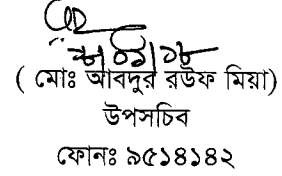 ( মোঃ আবদুর রউফ মিয়া)
উপসচিব
ফোনঃ ৯৫১৪১৪২